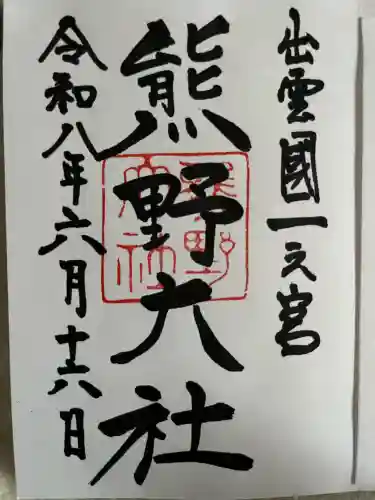 出雲國一之宮
熊野大社
令和八年六月十六日
熊野
大社